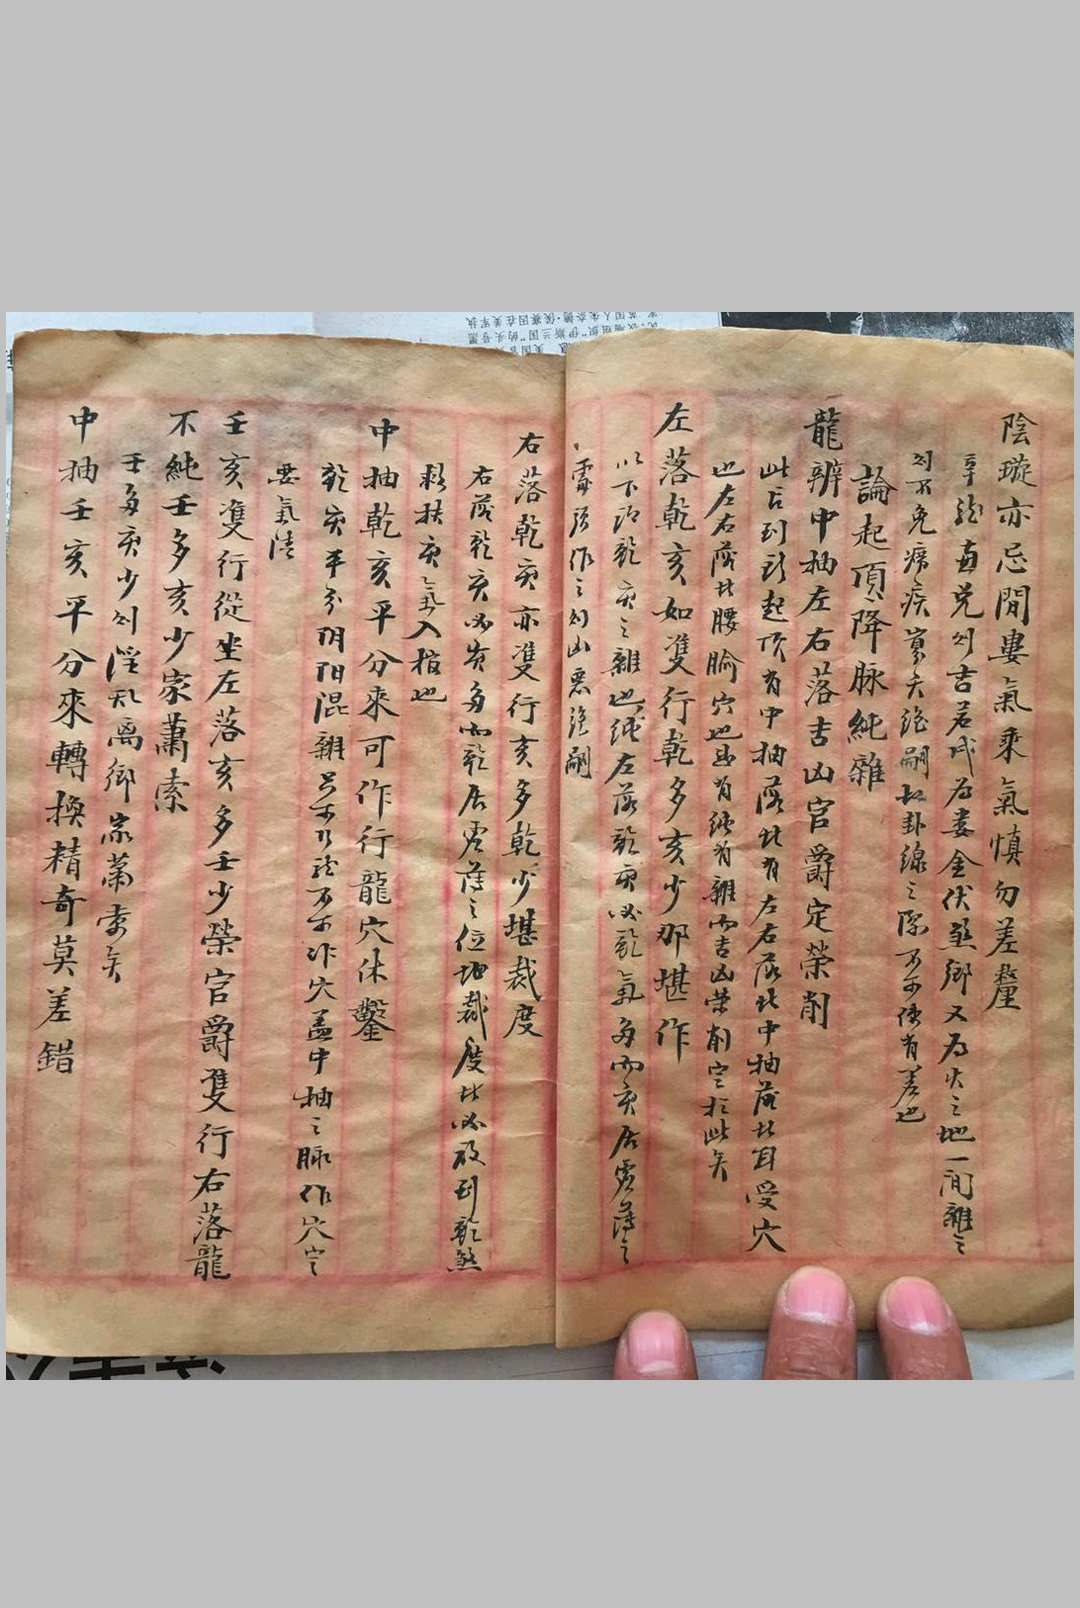 陰璇亦忌閒婁氣乘氣慎勿差釐
辛龍直兌則吉若戌為婁金伏煞鄉又為火之地一间雜之
則不免痼疾寡夭絶嗣故卦線之際不可使有差也
論起頂降脉純雜
龍辨中抽左右落吉凶官爵定榮削
此言到頭起頂有中抽落北有左右落北中抽落北耳受穴
也左右落北腰腧穴也有純有雜而吉凶榮削定於此矣
左落乾亥如雙行乾多亥少那堪作
以下論乾亥之雜也純左落乾亥必乾氣多而亥居虛薄之
處強作之則凶惡絶嗣
右落乾亥亦雙行亥多乾少堪裁度
右落乾亥必亥多而乾居虛薄之位地裁度北必放到乾煞
扶亥氣入棺也
中抽乾亥平分來可作行龍穴休鑿
乾亥平分阴阳混雜只可行龍不可作穴盖中抽之脉作穴定
要氣清
壬亥雙行從坐左落亥多壬少榮官爵雙行右落龍
不純壬多亥少家蕭索
壬多亥少則淫乱离鄉家蕭索矣
中抽壬亥平分來轉換精奇莫差錯